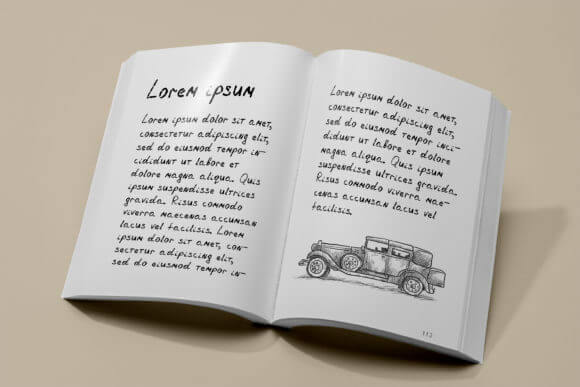 Lorem ipsum
Lorem ipsum dolor sit amet,
consectetur adipiscing elit,
sed do eiusmod tempor in-
cididunt ut labore et
dolore magna aliqua. Quis
ipsum suspendisse ultrices
gravida. Risus commodo
viverra maecenas accumsan
lacus vel facilisis. Lorem
ipsum dolor sit amet, con-
sectetur adipiscing elit,
sed do eiusmod tempor in-
Lorem ipsum dolor sit amet,
consectetur adipiscing elit,
sed do eiusmod tempor inci-
didunt ut labore et dolore
magna aliqua. Quis ipsum
suspendisse ultrices gravida.
Risus commodo viverra mae-
cenas accumsan lacus vel
facilisis.
112